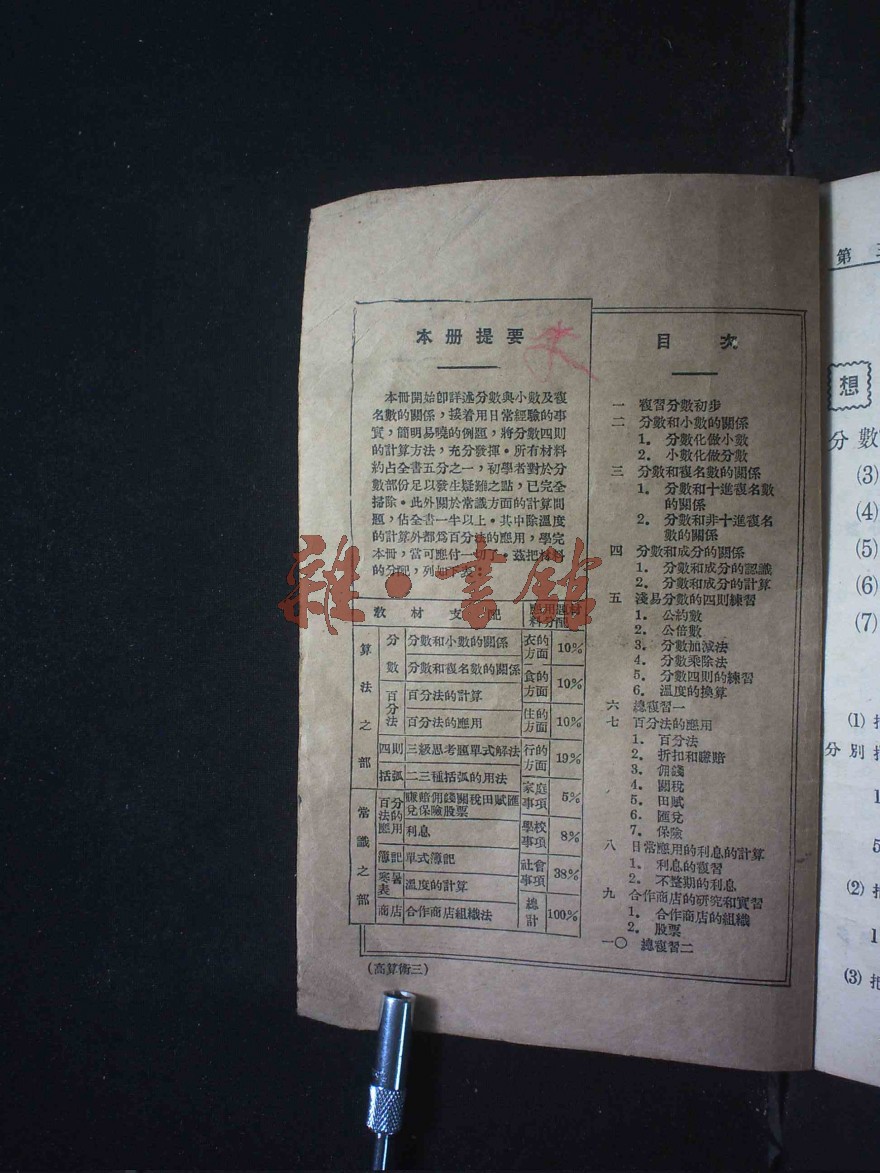 本册提要
本冊開始即詳述分數與小數及複
名數的關係，接着用日常經驗的事
實，簡明易曉的例題，將分數四則
的計算方法，充分發揮。所有材料
約占全書五分之一，初學者對於分
數部份足以發生疑難之點，已完全
掃除。此外關於常識方面的計算問
題，佔全書一半以上。其中除溫度
的計算外都爲百分法的應用，學完
本冊，當可應付一切了。茲把材料
的分配，列如下表：
教材支配 應用題材料分配
算法之部
分數 分數和小數的關係
分數和複名數的關係
百分法 百分法的計算
百分法的應用
四則 三級思考題單式解法
括弧 二三種括弧的用法
常識之部
百分法的應用 賺賠佣錢關稅田賦匯
兌保險股票
利息
簿記 單式簿記
寒暑表 溫度的計算
商店 合作商店組織法
衣的方面 10%
食的方面 10%
住的方面 10%
行的方面 19%
家庭事項 5%
學校事項 8%
社會事項 38%
總計 100%
(高算術三)
目次
一 複習分數初步
二 分數和小數的關係
1. 分數化做小數
2. 小數化做分數
三 分數和複名數的關係
1. 分數和十進複名數
的關係
2. 分數和非十進複名
數的關係
四 分數和成分的關係
1. 分數和成分的認識
2. 分數和成分的計算
五 淺易分數的四則練習
1. 公約數
2. 公倍數
3. 分數加減法
4. 分數乘除法
5. 分數四則的練習
6. 溫度的換算
六 總複習一
七 百分法的應用
1. 百分法
2. 折扣和賺賠
3. 佣錢
4. 關稅
5. 田賦
6. 匯兌
7. 保險
八 日常應用的利息的計算
1. 利息的複習
2. 不整期的利息
九 合作商店的研究和實習
1. 合作商店的組織
2. 股票
一〇 總複習二
雜·書館
第
想
分數
(3)
(4)
(5)
(6)
(7)
(1)
分別
1
5
(2)
1
(3)